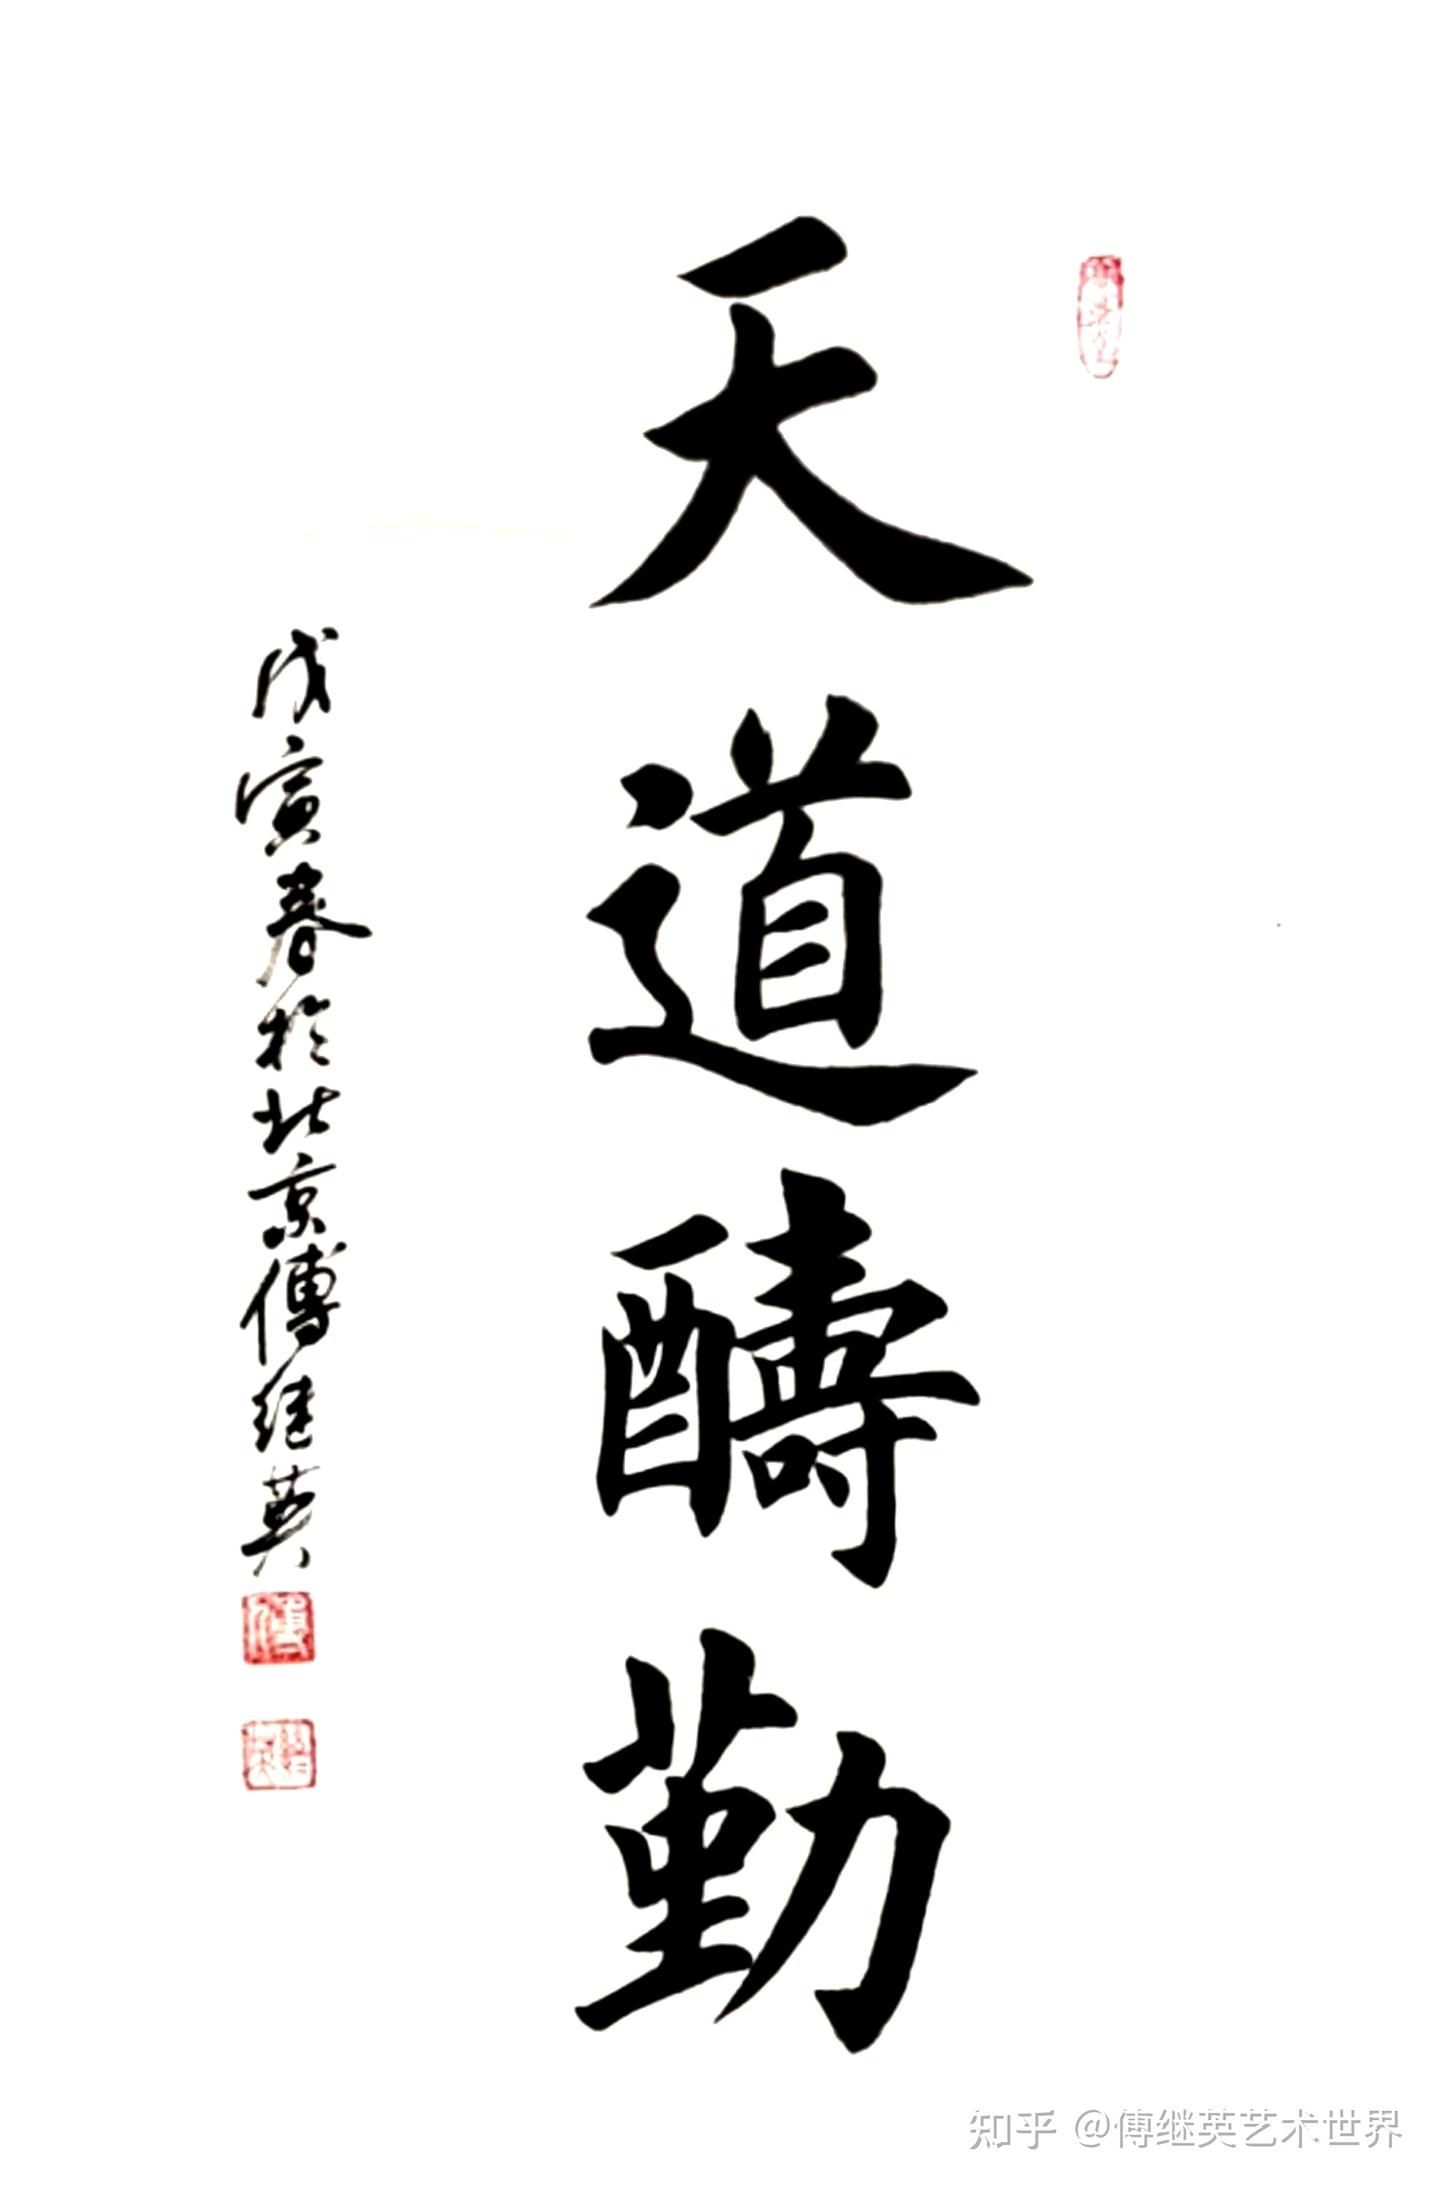 天道醻勤
戊寅春於北京傅继英
傅
知乎 @傅继英艺术世界